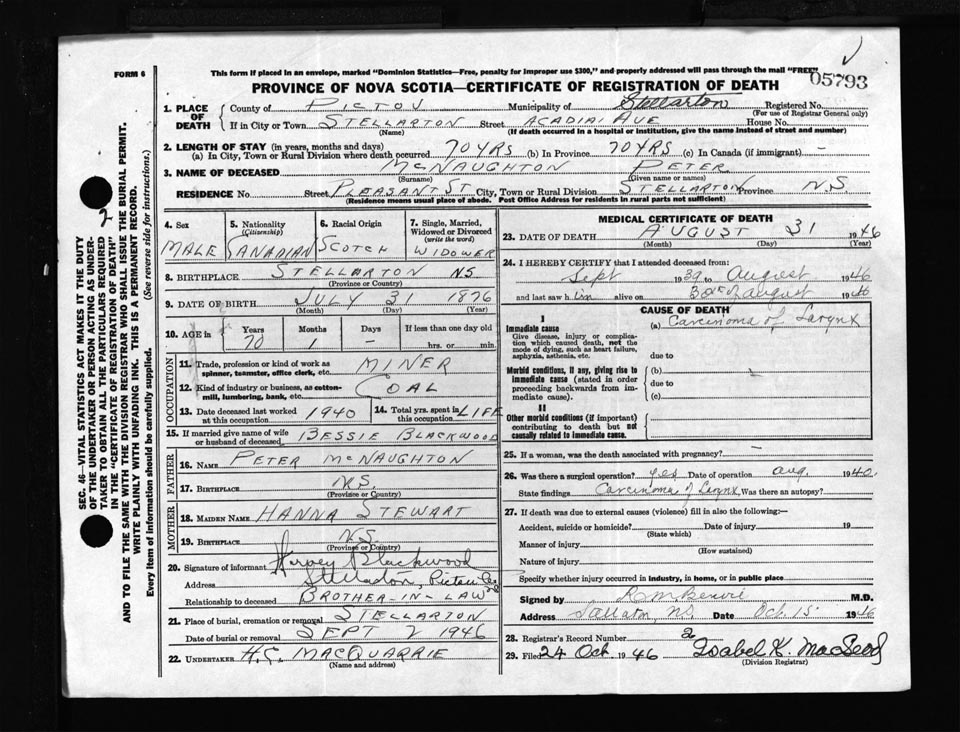 This form if placed in an envelope, marked "Dominion Statistics—Free, penalty for improper use $300," and properly addressed will pass through the mail "FREE"
FORM 6
05793
PROVINCE OF NOVA SCOTIA—CERTIFICATE OF REGISTRATION OF DEATH
1. PLACE OF DEATH County of PICTOU Municipality of Stellarton Registered No.
(For use of Registrar General only)
If in City or Town STELLARTON Street ACADIA AVE House No.
(Name) (If death occurred in a hospital or institution, give the name instead of street and number)
2. LENGTH OF STAY (in years, months and days)
(a) In City, Town or Rural Division where death occurred 70 YRS (b) In Province 70 YRS (c) In Canada (if immigrant) —
3. NAME OF DECEASED MCNAUGHTON PETER
(Surname) (Given name or names)
RESIDENCE No. Street PLEASANT ST City, Town or Rural Division STELLARTON Province N.S
(Residence means usual place of abode. Post Office Address for residents in rural parts not sufficient)
4. Sex 5. Nationality (Citizenship) 6. Racial Origin 7. Single, Married, Widowed or Divorced (write the word)
MALE CANADIAN SCOTCH WIDOWER
8. BIRTHPLACE STELLARTON NS
(Province or Country)
9. DATE OF BIRTH JULY 31 1876
(Month) (Day) (Year)
10. AGE in Years Months Days If less than one day old
70 1 — hrs. or min.
OCCUPATION
11. Trade, profession or kind of work as spinner, teamster, office clerk, etc. MINER
12. Kind of industry or business, as cotton-mill, lumbering, bank, etc. COAL
13. Date deceased last worked at this occupation 1940 14. Total yrs. spent in this occupation LIFE
15. If married give name of wife or husband of deceased BESSIE BLACKWOOD
FATHER
16. NAME PETER MCNAUGHTON
17. BIRTHPLACE N.S.
(Province or Country)
MOTHER
18. MAIDEN NAME HANNA STEWART
19. BIRTHPLACE N.S.
(Province or Country)
20. Signature of informant Harvey Blackwood
Address Stellarton, Pictou Co
Relationship to deceased BROTHER-IN-LAW
21. Place of burial, cremation or removal STELLARTON
Date of burial or removal SEPT 2 1946
22. UNDERTAKER H.C. MACQUARRIE
(Name and address)
MEDICAL CERTIFICATE OF DEATH
23. DATE OF DEATH AUGUST 31 1946
(Month) (Day) (Year)
24. I HEREBY CERTIFY that I attended deceased from:
Sept 1939 to August 1946
and last saw him alive on 30th August 1946
CAUSE OF DEATH
I
Immediate cause (a) Carcinoma of Larynx
Give disease, injury or complication which caused death, not the mode of dying, such as heart failure, asphyxia, asthenia, etc. due to
Morbid conditions, if any, giving rise to immediate cause (stated in order proceeding backwards from immediate cause). (b)
due to
(c)
II
Other morbid conditions (if important) contributing to death but not causally related to immediate cause.
25. If a woman, was the death associated with pregnancy? —
26. Was there a surgical operation? yes Date of operation Aug. 1940
State findings Carcinoma of Larynx Was there an autopsy?
27. If death was due to external causes (violence) fill in also the following:—
Accident, suicide or homicide? Date of injury 19
(State which)
Manner of injury
(How sustained)
Nature of injury
Specify whether injury occurred in industry, in home, or in public place
Signed by M.D.
Address Stellarton, NS Date Oct. 15 1946
28. Registrar's Record Number 2
29. Filed 24 Oct. 1946 Isabel K. MacLeod
(Division Registrar)
SEC. 46—VITAL STATISTICS ACT MAKES IT THE DUTY
OF THE UNDERTAKER OR PERSON ACTING AS UNDER-
TAKER TO OBTAIN ALL THE PARTICULARS REQUIRED
IN THE "CERTIFICATE OF REGISTRATION OF DEATH"
AND TO FILE THE SAME WITH THE DIVISION REGISTRAR WHO SHALL ISSUE THE BURIAL PERMIT.
WRITE PLAINLY WITH UNFADING INK. THIS IS A PERMANENT RECORD.
Every item of information should be carefully supplied. (See reverse side for instructions.)
2